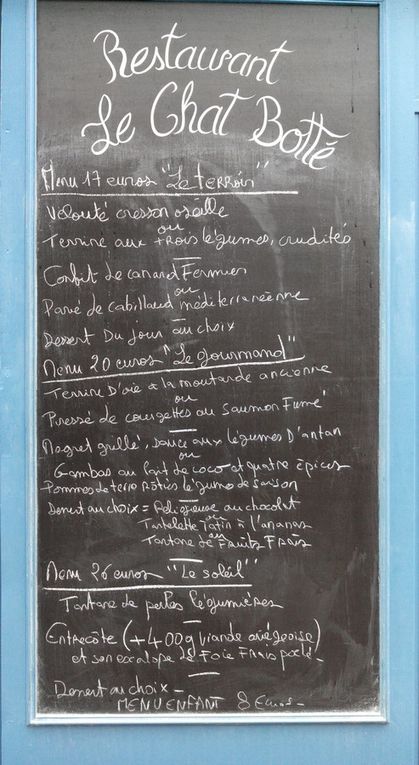 Restaurant
Le Chat Botté
Menu 17 euros "Le terroir"
Velouté cresson oseille
ou
Terrine aux trois légumes, crudités
Confit de canard Fermier
ou
Pavé de cabillaud méditerranéenne
Dessert Du jour au choix
Menu 20 euros "Le gourmand"
Terrine D'oie à la moutarde ancienne
ou
Pressé de courgettes au saumon Fumé
Magret grillé, sauce aux légumes D'antan
ou
Gambas au lait de coco et quatre épices
Pommes de terre Rôties légumes de saison
Dessert au choix = Religieuse au chocolat
ou
Tartelette Tatin à l'ananas
ou
Tartare de Fruits Frais
Menu 26 euros "Le soleil"
Tartare de perles légumières
Entrecôte (+400g viande ariégeoise)
et son escalope de Foie Frais poêlé -
Dessert au choix -
MENU ENFANT 8 Euros -